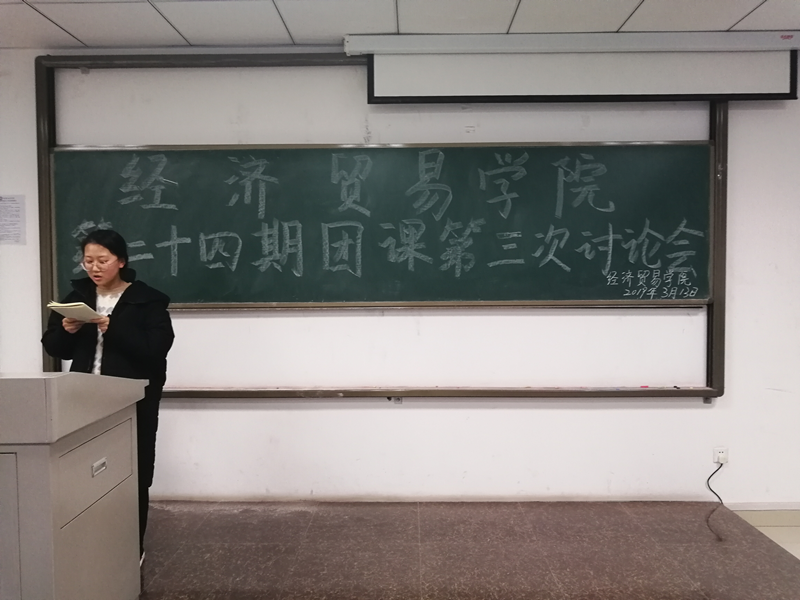 经济贸易学院
第二十四期团课第三次讨论会
经济贸易学院
2019年3月13日